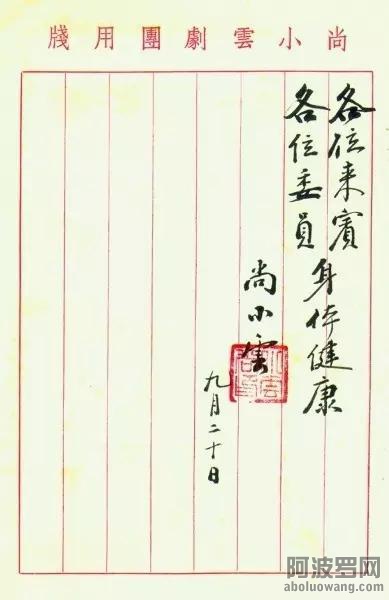 尚小雲劇團用牋
各位来賓
各位委員
身体健康
尚小雲
九月二十日
阿波罗网
aboluowang.com